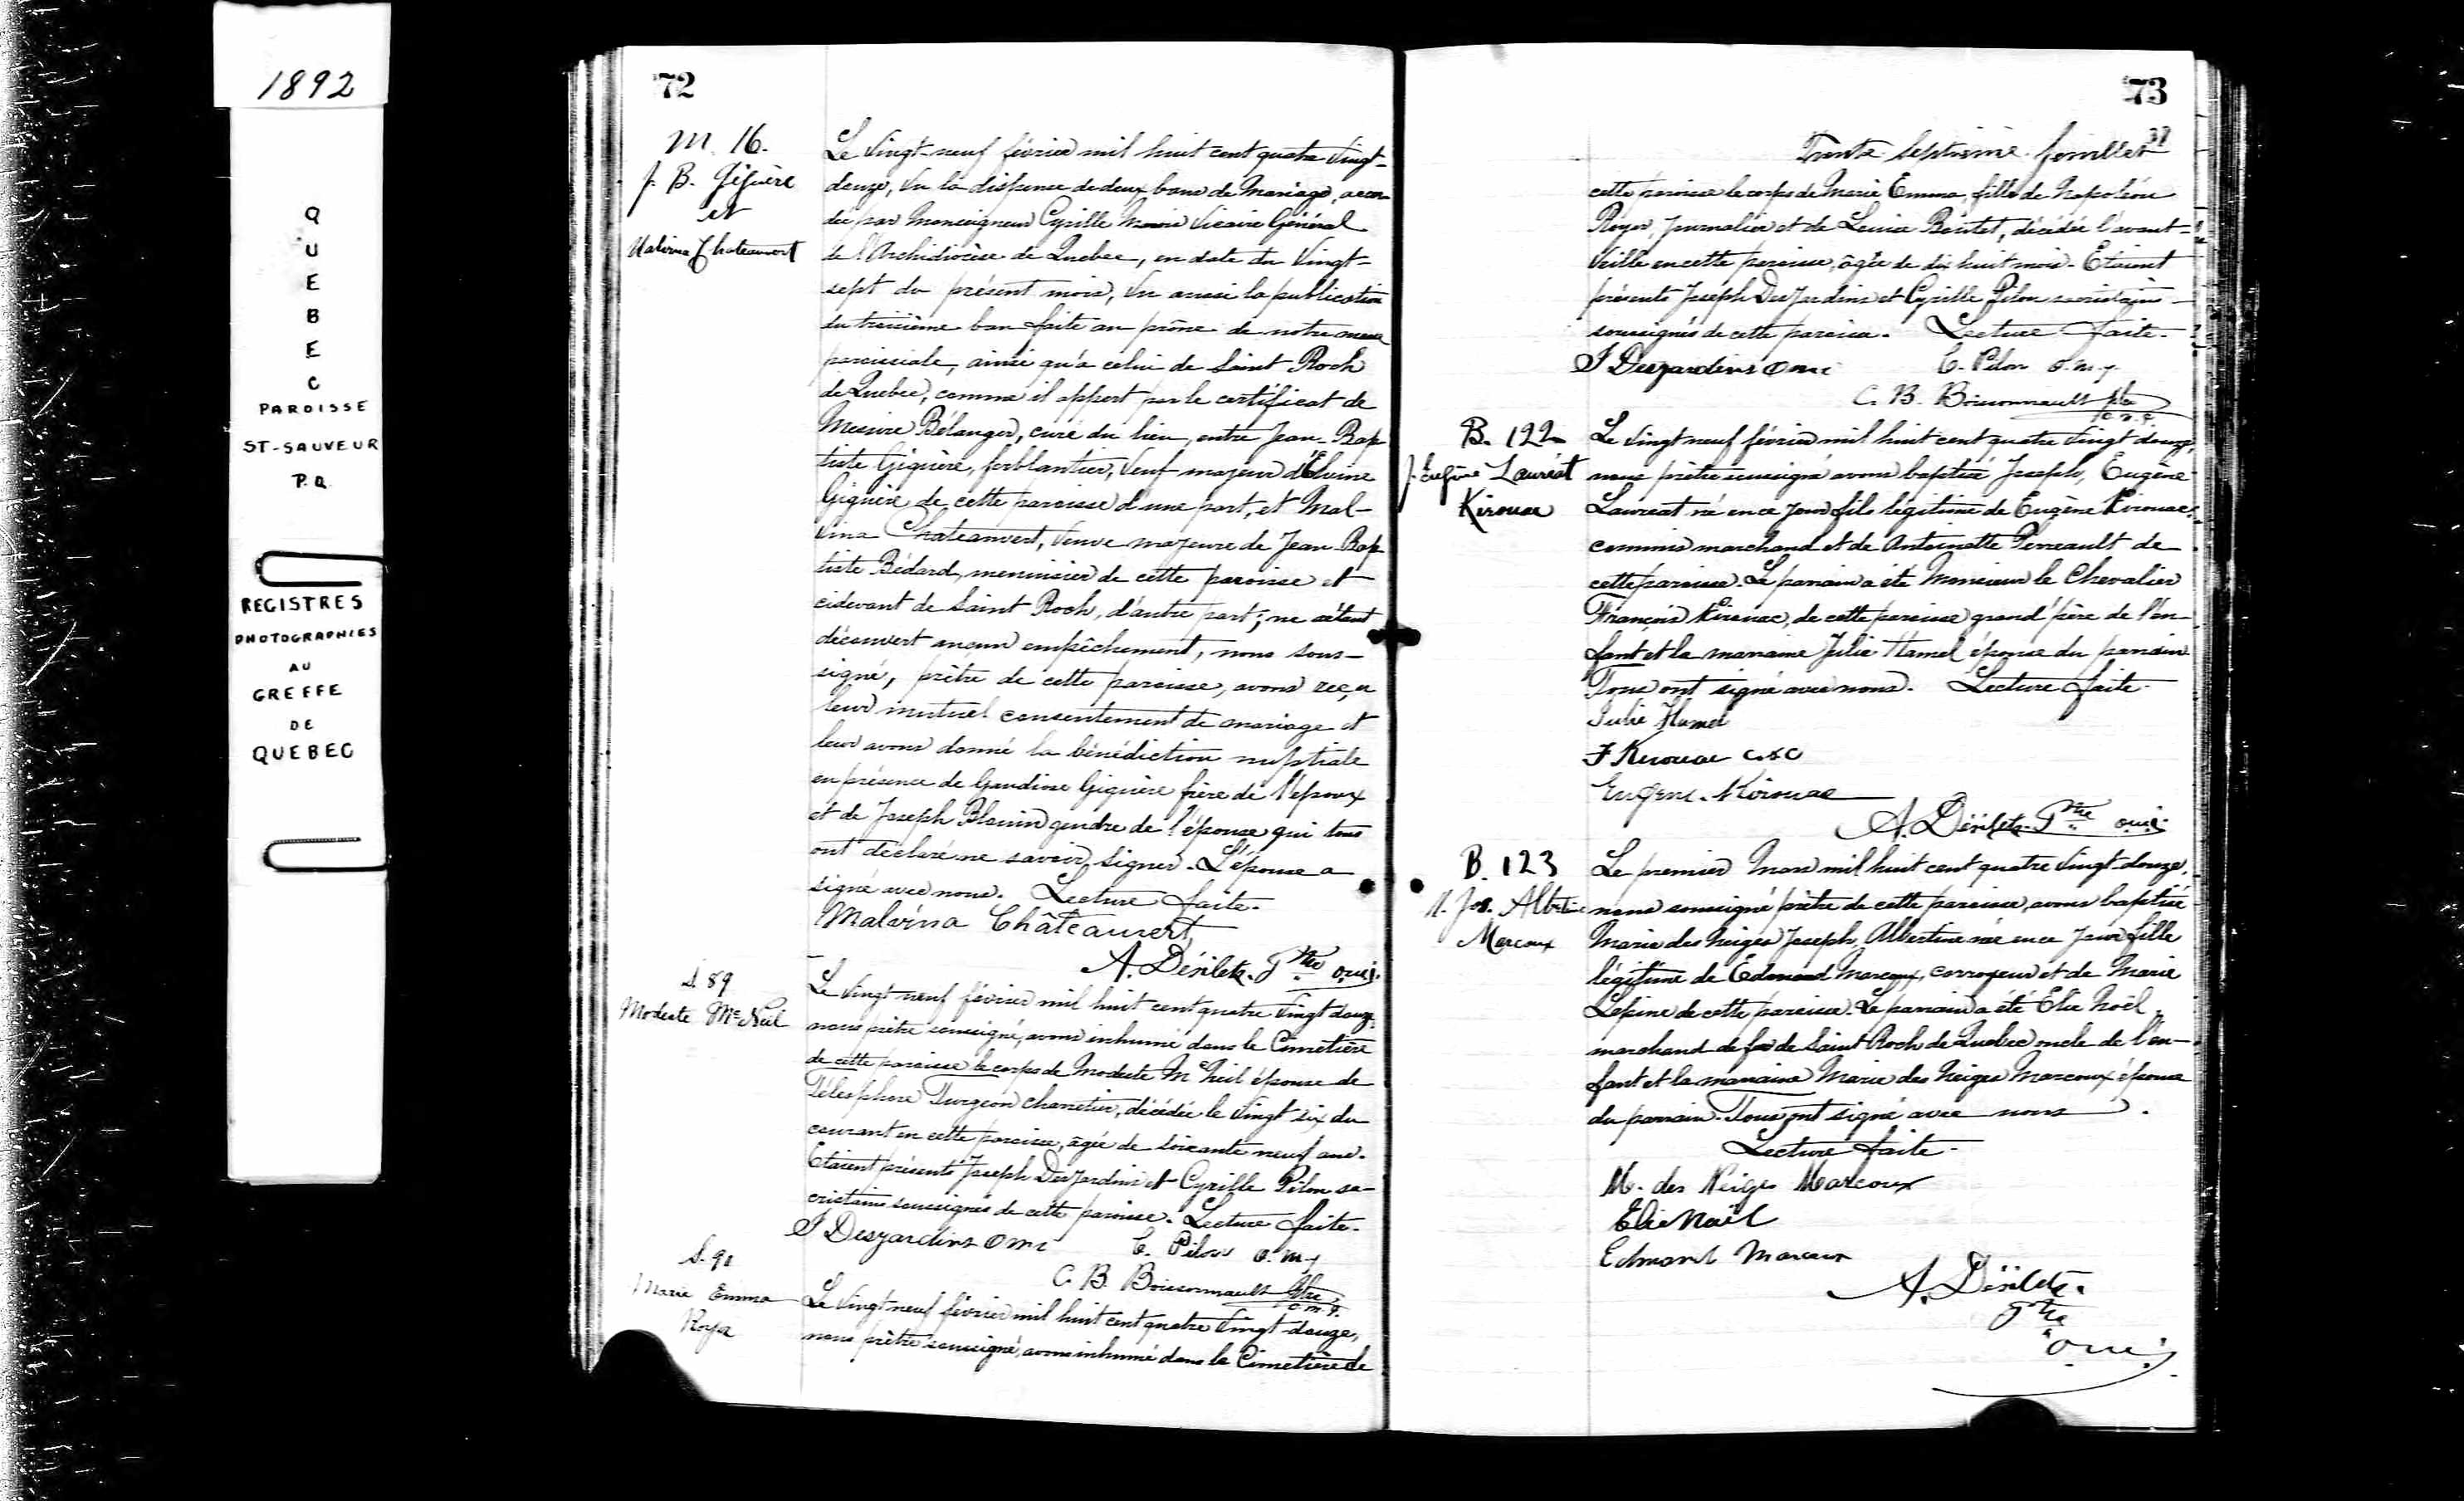 1892
QUEBEC
PAROISSE
ST-SAUVEUR
P.Q.
REGISTRES
PHOTOGRAPHIES
AU
GREFFE
DE
QUEBEC
72
M. 16.
J. B. Giguère
et
Malvina Chateauvert
Le vingt-neuf février mil huit cent quatre vingt-
douze, vu la dispense de deux bans de mariage, accor-
dée par Monseigneur Cyrille Marois Vicaire Général
de l'Archidiocèse de Quebec, en date du vingt-
sept du présent mois, vu aussi la publication
du troisième ban faite au prône de notre messe
paroissiale, ainsi qu'à celui de Saint Roch
de Quebec, comme il appert par le certificat de
Messire Bélanger, curé du lieu, entre Jean-Bap-
tiste Giguère, ferblantier, veuf majeur d'Elvine
Giguère, de cette paroisse d'une part, et Mal-
vina Chateauvert, veuve majeure de Jean Bap-
tiste Bédard, menuisier de cette paroisse et
cidevant de Saint Roch, d'autre part; ne s'étant
découvert aucun empêchement, nous sous-
signé, prêtre de cette paroisse, avons reçu
leur mutuel consentement de mariage et
leur avons donné la bénédiction nuptiale
en présence de Gaudiose Giguère frère de l'époux
et de Joseph Blouin gendre de l'épouse qui tous
ont déclaré ne savoir signer. L'épouse a
signé avec nous. Lecture faite.
Malvina Châteauvert
A. Désilets. Ptre o.m.i.
S. 89
Modeste McNeil
Le vingt neuf février mil huit cent quatre vingt douze,
nous prêtre soussigné, avons inhumé dans le Cimetière
de cette paroisse le corps de Modeste McNeil épouse de
Télesphore Turgeon charretier, décédée le vingt six du
courant en cette paroisse, âgée de soixante neuf ans.
Etaient présents Joseph Desjardins et Cyrille Pilon sa-
cristains soussignés de cette paroisse. Lecture faite.
J Desjardins omi C. Pilon o.m.j.
C. B. Boissonnault Ptre
o.m.i.
S. 90
Marie Emma
Royer
Le vingt neuf février mil huit cent quatre vingt douze,
nous prêtre soussigné, avons inhumé dans le Cimetière de
73
37
Trente septième feuillet
cette paroisse le corps de Marie Emma, fille de Napoléon
Royer, journalier et de Louise Boutet, décédée l'avant-
veille en cette paroisse, âgée de dix huit mois. Etaient
présents Joseph Desjardins et Cyrille Pilon sacristains
soussignés de cette paroisse. Lecture faite.
J Desjardins omi C. Pilon o.m.j.
C. B. Boissonnault ptre
o.m.i.
B. 122
J. Eugène Lauréat
Kirouac
Le vingt neuf février mil huit cent quatre vingt douze,
nous prêtre soussigné avons baptisé Joseph, Eugène
Lauréat né en ce jour fils légitime de Eugène Kirouac
commis marchand et de Antoinette Perreault de
cette paroisse. Le parrain a été Monsieur le Chevalier
François Kirouac, de cette paroisse grand'père de l'en-
fant et la marraine Julie Hamel épouse du parrain
Tous ont signé avec nous. Lecture faite.
Julie Hamel
F Kirouac
Eugène Kirouac
A. Désilets Ptre omi.
B. 123
M. Jos. Albertine
Marcoux
Le premier Mars mil huit cent quatre vingt douze,
nous soussigné prêtre de cette paroisse, avons baptisé
Marie des Neiges Joseph Albertine née en ce jour fille
légitime de Edmond Marcoux, corroyeur et de Marie
Lépine de cette paroisse. Le parrain a été Elie Noël
marchand de fer de Saint Roch de Quebec oncle de l'en-
fant et la marraine Marie des Neiges Marcoux épouse
du parrain. Tous ont signé avec nous.
Lecture faite.
M. des Neiges Marcoux
Elie Noël
Edmond Marcoux
A. Désilets.
Ptre
omi